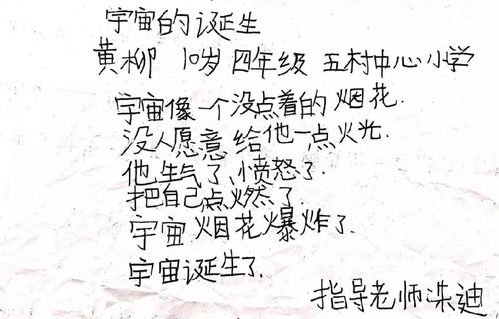 宇宙的诞生
黄柳 10岁 四年级 五村中心小学
宇宙像一个没点着的烟花.
没人愿意给他一点火光.
他生气了,愤怒了.
把自己点燃了.
宇宙烟花爆炸了.
宇宙诞生了.
指导老师洪迪